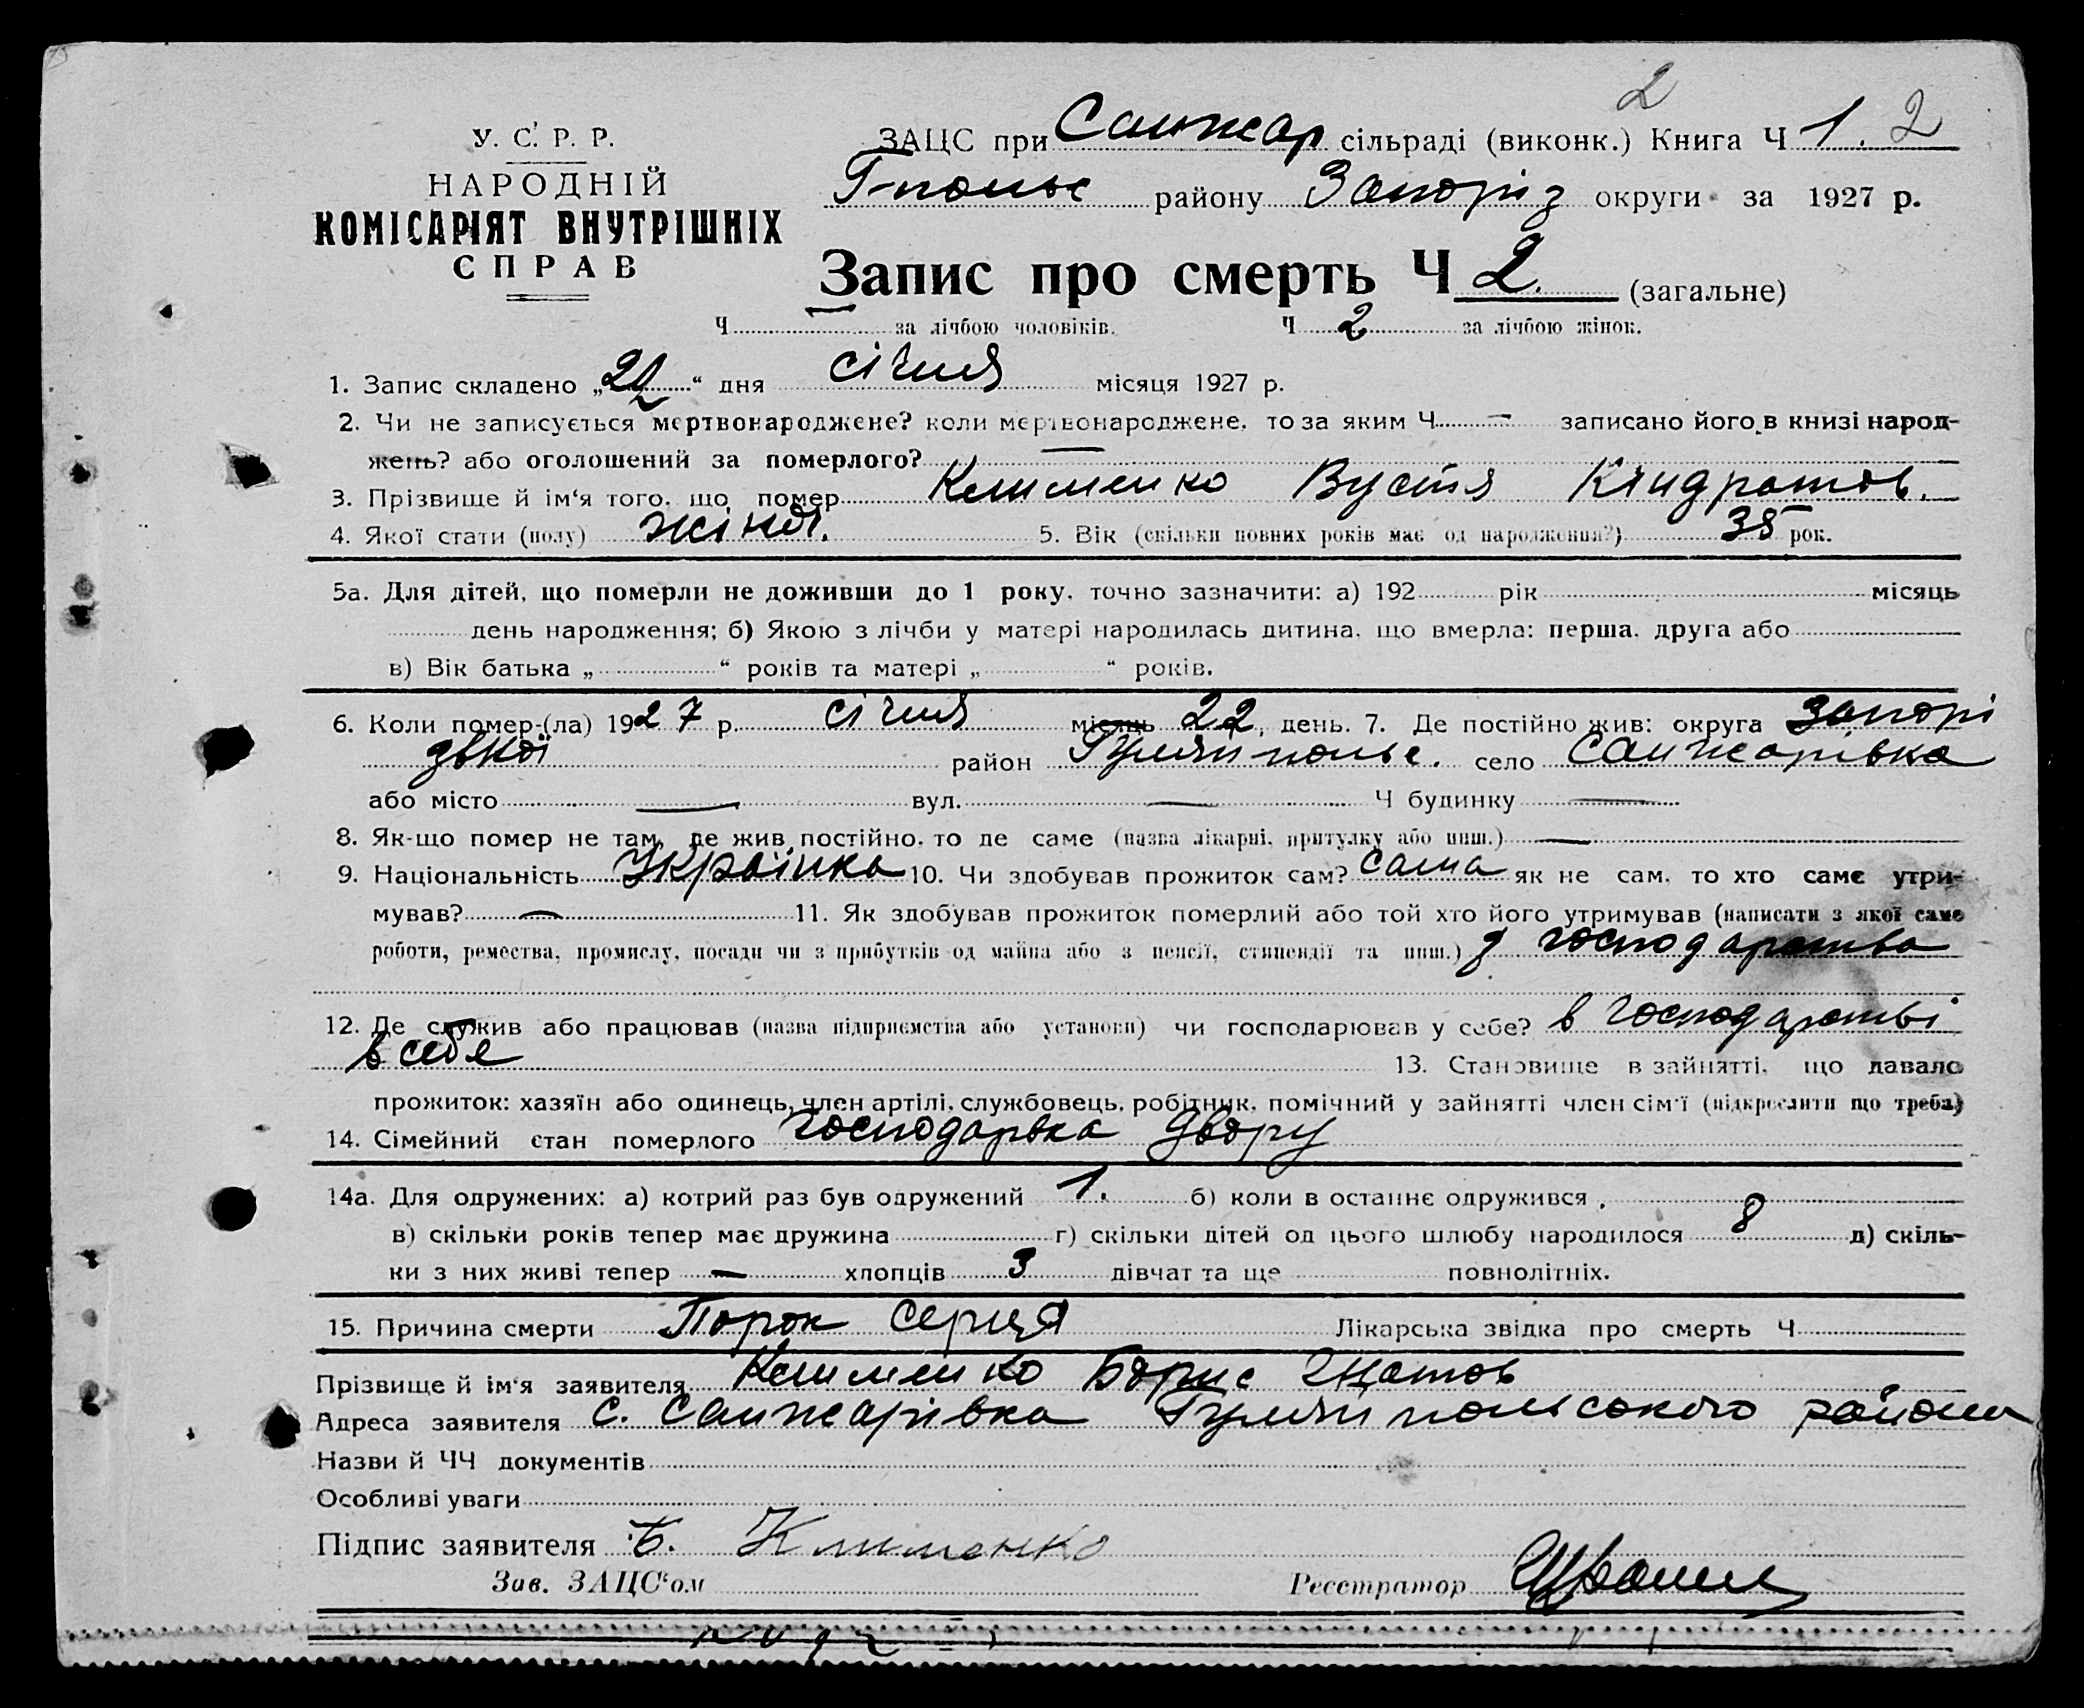 2
У. С. Р. Р.
НАРОДНІЙ
КОМІСАРІЯТ ВНУТРІШНІХ
СПРАВ
ЗАЦС при Санжар сільраді (виконк.) Книга Ч 1. 2
Г-польс району Запоріз округи за 1927 р.
Запис про смерть Ч 2. (загальне)
Ч — за лічбою чоловіків. Ч 2 за лічбою жінок.
1. Запис складено „22“ дня січня місяця 1927 р.
2. Чи не записується мертвонароджене? коли мертвонароджене, то за яким Ч — записано його в книзі народ-
жень? або оголошений за померлого? —
3. Прізвище й ім'я того, що помер Клименко Вустя Кіндратов.
4. Якої стати (полу) жіноч. 5. Вік (скільки повних років має од народження?) 35 рок.
5а. Для дітей, що померли не доживши до 1 року, точно зазначити: а) 192 рік місяць
день народження; б) Якою з лічби у матері народилась дитина, що вмерла: перша, друга або
в) Вік батька „ “ років та матері „ “ років.
6. Коли помер-(ла) 1927 р. січня місяць 22, день. 7. Де постійно жив: округа Запорі
зької район Гуляйпольс. село Санжарівка
або місто — вул. — Ч будинку —
8. Як-що помер не там, де жив постійно, то де саме (назва лікарні, притулку або инш.) —
9. Національність Українка 10. Чи здобував прожиток сам? сама як не сам, то хто саме утри-
мував? — 11. Як здобував прожиток померлий або той хто його утримував (написати з якої саме
роботи, ремества, промислу, посади чи з прибутків од майна або з пенсії, стипендії та инш.) з господарства
12. Де служив або працював (назва підприємства або установи) чи господарював у себе? в господарстві
в себе 13. Становище в зайнятті, що давало
прожиток: хазяїн або одинець, член артілі, службовець, робітник, помічний у зайнятті член сім'ї (підкреслити що треба)
14. Сімейний стан померлого господарька двору
14а. Для одружених: а) котрий раз був одружений 1. б) коли в останнє одружився
в) скільки років тепер має дружина г) скільки дітей од цього шлюбу народилося 8 д) скіль-
ки з них живі тепер — хлопців 3 дівчат та ще повнолітніх.
15. Причина смерти Порок серця Лікарська звідка про смерть Ч
Прізвище й ім'я заявителя Клименко Борис Гнатов
Адреса заявителя с. Санжарівка Гуляйпольського району
Назви й ЧЧ документів
Особливі уваги
Підпис заявителя Б. Клименко
Зав. ЗАЦС'ом Реєстратор